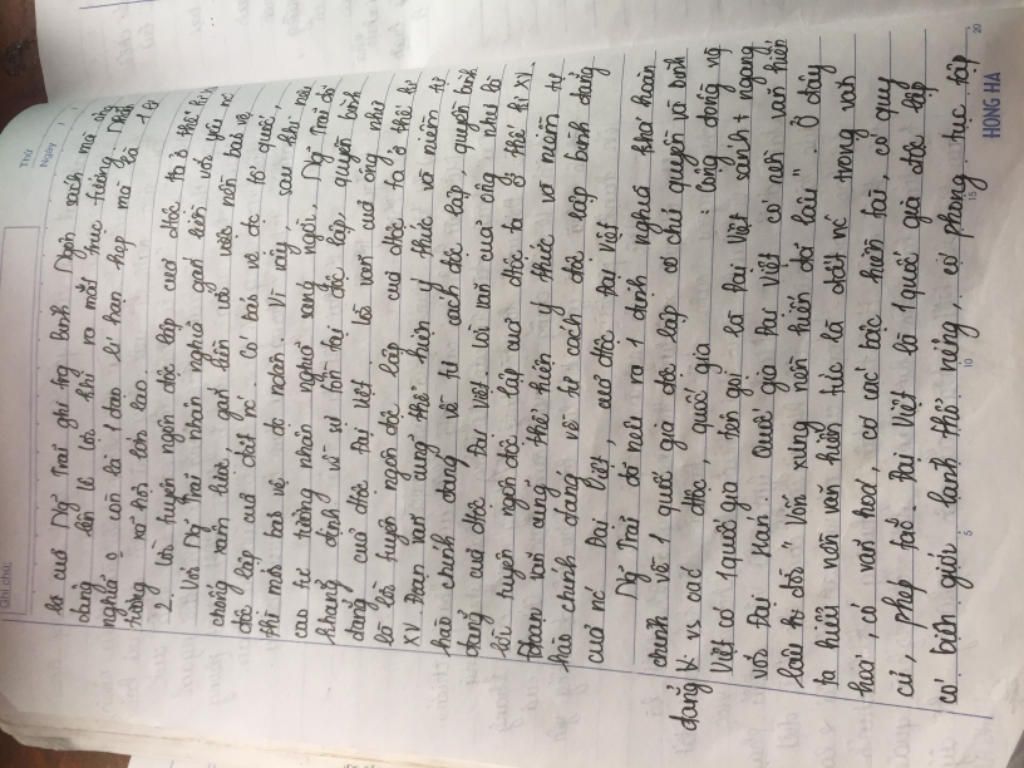 Ghi chú:
Thứ
Ngày
là của Ng Trãi ghi trg bình Ngôn sách mà ông
dâng lên lê lợi khi ra mắt trục tướng. Nhân
nghĩa ở còn là 1 đạo lí hạn hẹp mà là 1 lý
tưởng xã hội lớn lao.
2. Lời tuyên ngôn độc lập của dtộc ta ở thế kỉ XV
Với Ng Trãi nhân nghĩa gắn liền với yêu nc
chống xâm lược, gắn liền với việc nền bảo vệ
độc lập của đất nc. Có bảo vệ đc tổ quốc,
thì mới bảo vệ đc ndân. Vì vậy, sau khi nêu
cao tư tưởng nhân nghĩa sang ngời, Ng Trãi đã
khẳng định về sự tồn tại độc lập, quyền bình
đẳng của dtộc đại việt. Lời văn của ông như
là lời tuyên ngôn độc lập của dtộc ta ở thế kỉ
XV. Đoạn văn cũng thể hiện ý thức và niềm tự
hào chính đáng về tư cách độc lập, quyền bình
đẳng của dtộc đại việt lời văn của ông như là
lời tuyên ngôn độc lập của dtộc ta ở thế kỉ XV.
Đoạn văn cũng thể hiện ý thức và niềm tự
hào chính đáng về tư cách độc lập bình đẳng
của nc Đại Việt, của dtộc đại Việt
Ng Trãi đã nêu ra 1 định nghĩa khá hoàn
chỉnh về 1 quốc gia độc lập có chủ quyền và bình
đẳng k vs các dtộc, quốc gia : Cộng đồng vs
Việt có 1 quốc gia tên gọi là Đại Việt sánh + ngang
với Đại Hán. Quốc gia Đại Việt có nền văn hiến
lâu đời "Vốn xưng nền hiến đã lâu". Ở đây
ta hiểu nền văn hiến tức là đất nc trong văn
hoá, có văn hoá, có các bậc hiền tài, có quy
củ, phép tắc. Đại Việt là 1 quốc gia độc lập
có biên giới lãnh thổ riêng, có phong tục tập
5
10
15
20
HONG HA